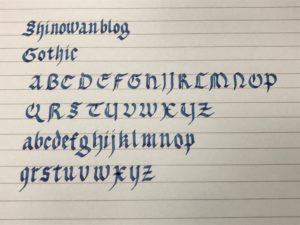 Shinowanblog
Gothic
ABCDEFGHIJKLMNOP
QRSTUVWXYZ
abcdefghijklmnop
qrstuvwxyz